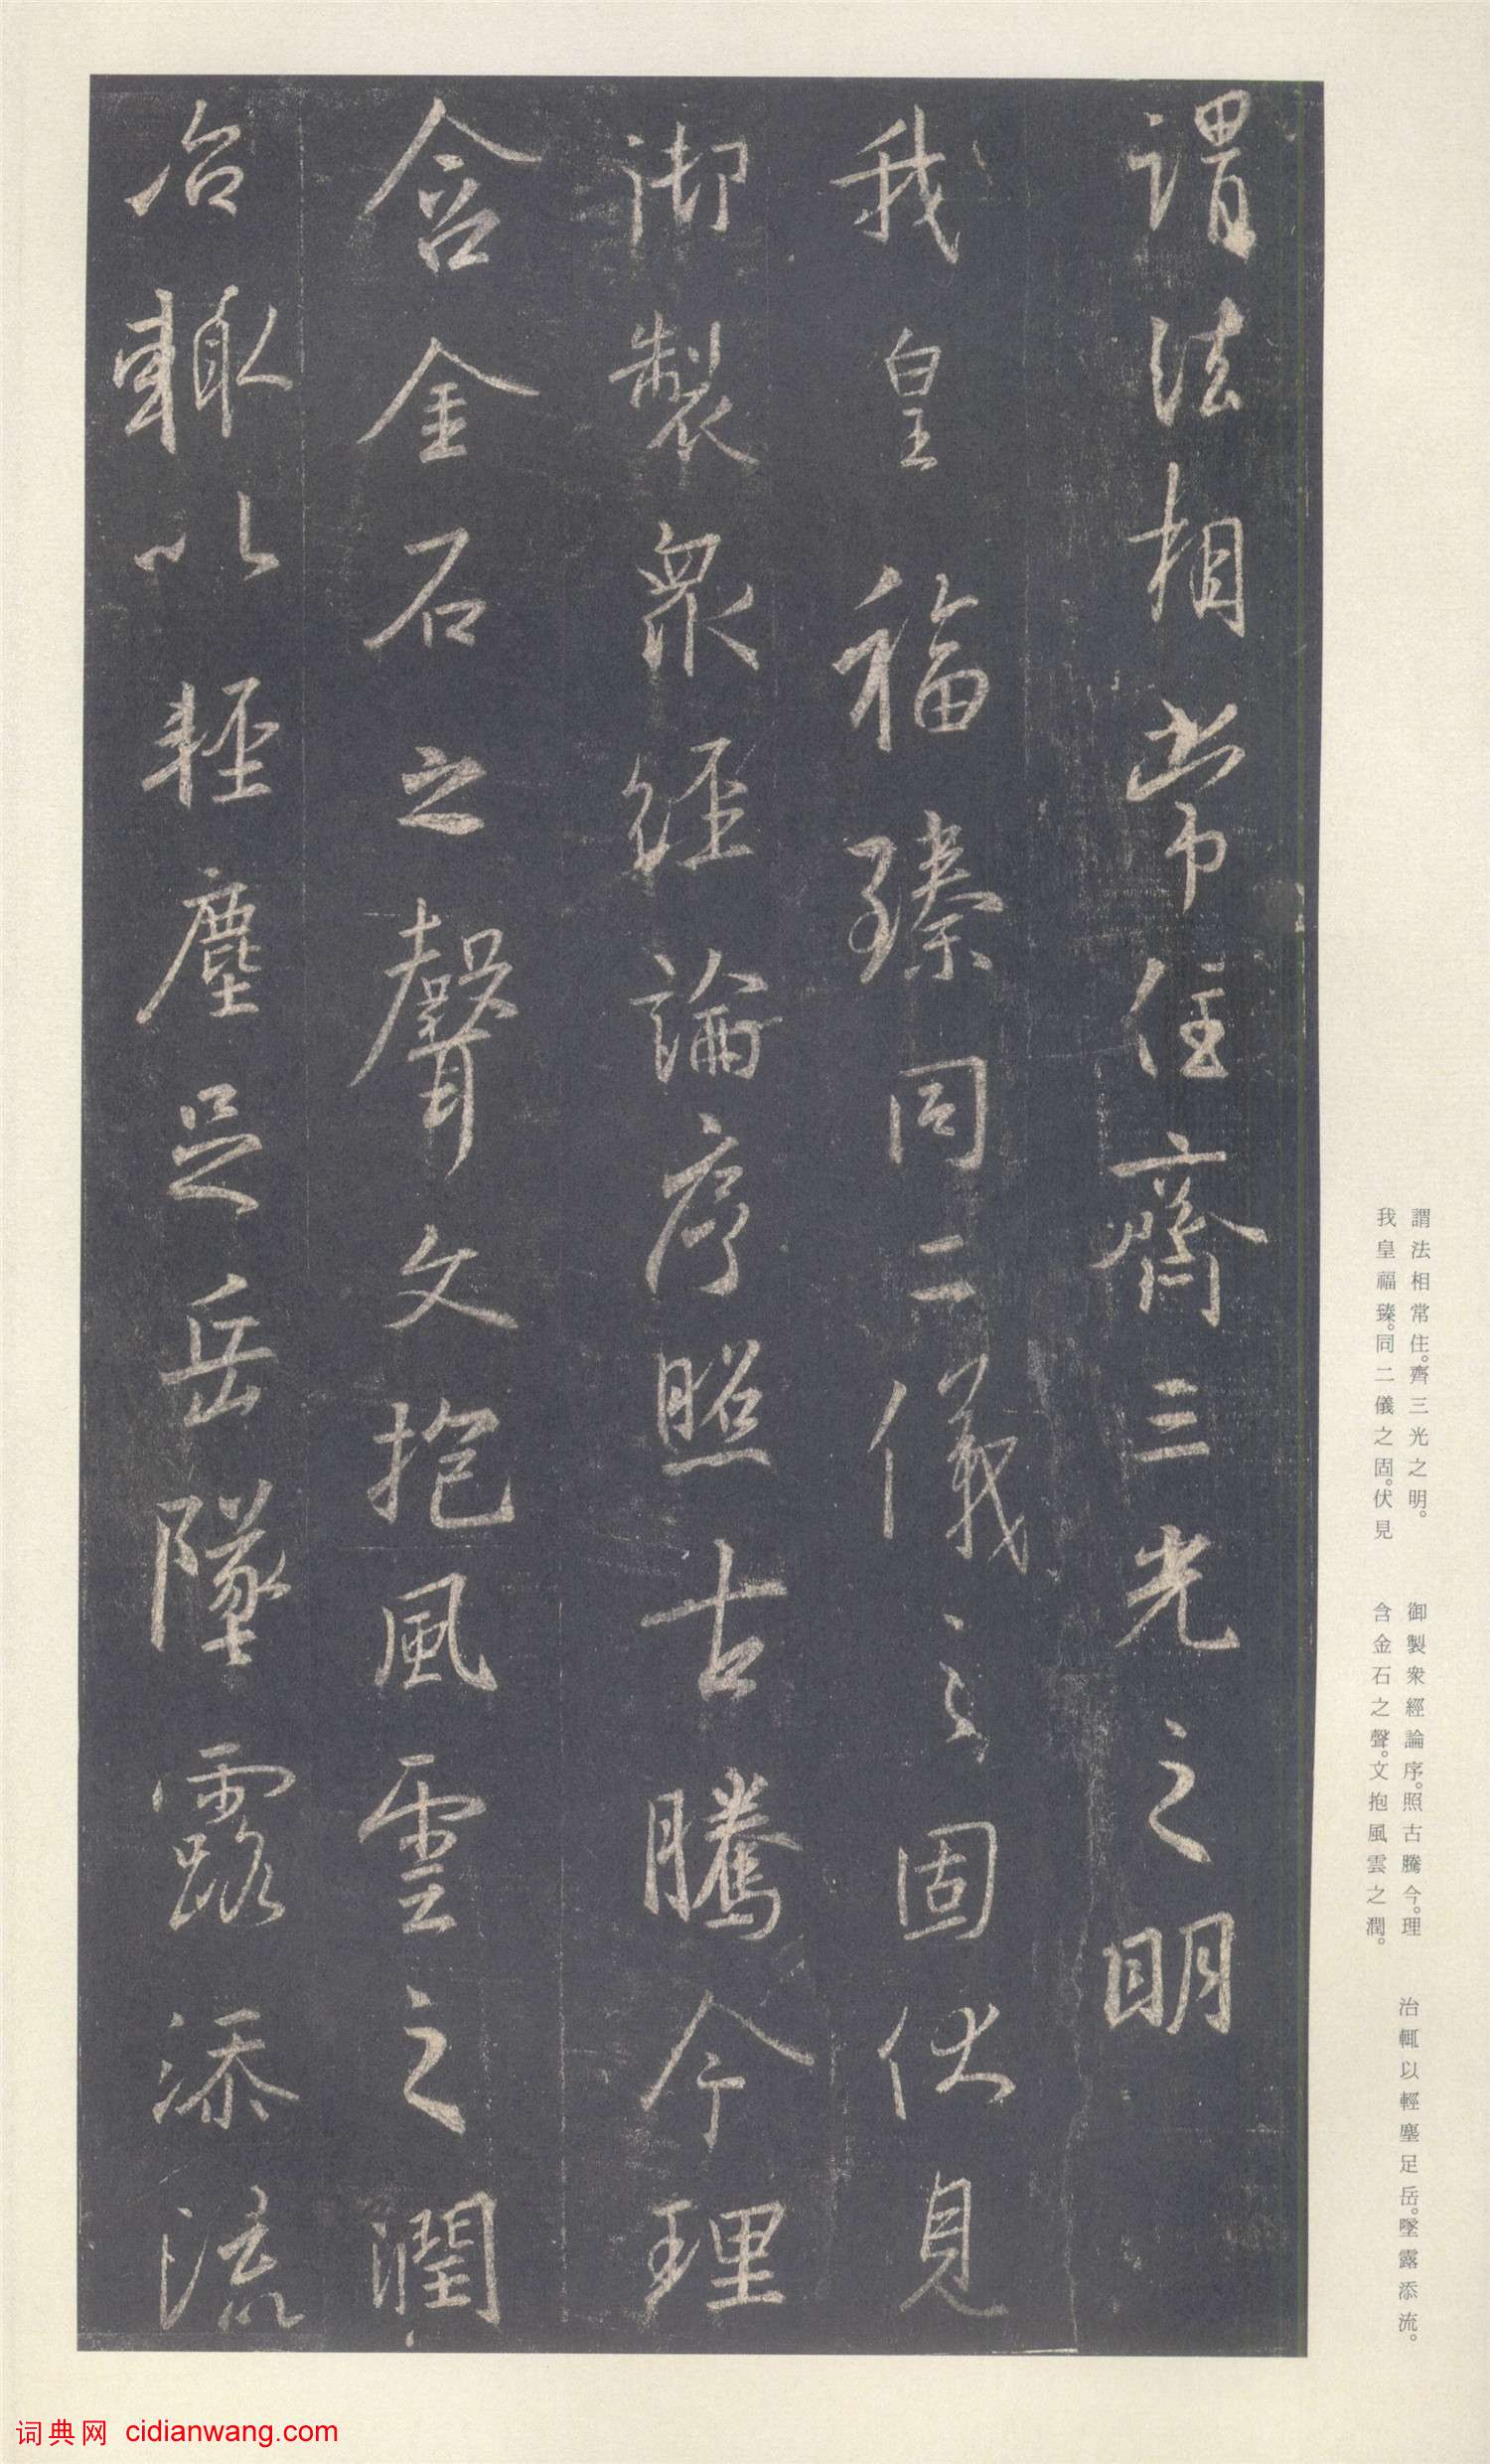 謂法相常住齊三光之明
我皇福臻同二儀之固伏見
御製衆經論序照古騰今理
含金石之聲文抱風雲之潤
治輒以輕塵足岳墜露添流
謂法相常住。齊三光之明。
我皇福臻。同二儀之固。伏見
御製衆經論序。照古騰今。理
含金石之聲。文抱風雲之潤。
治輒以輕塵足岳。墜露添流。
词典网 cidianwang.com